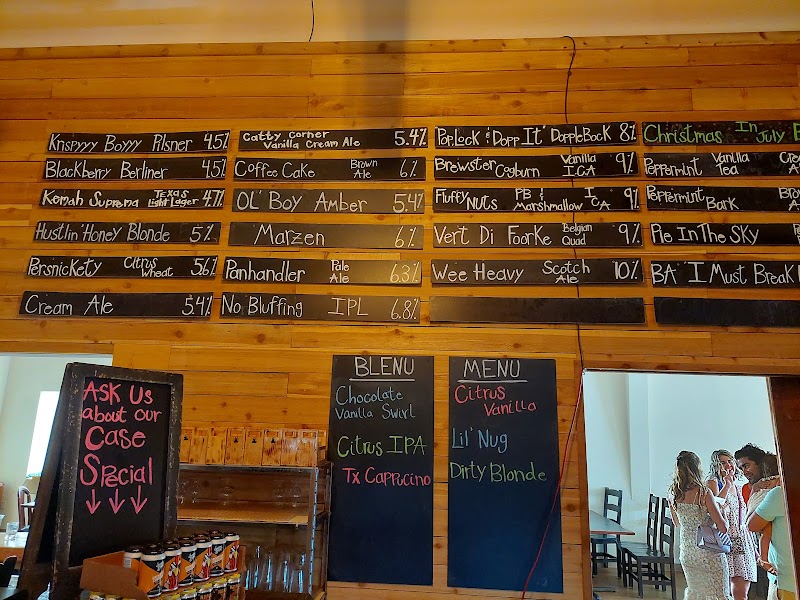 Krispyyy Boyyy Pilsner 4.5%
Blackberry Berliner 4.5%
Komah Suprema Texas Light Lager 4.7%
Hustlin' Honey Blonde 5%
Persnickety Citrus Wheat 5.6%
Cream Ale 5.4%
Catty Corner Vanilla Cream Ale 5.4%
Coffee Cake Brown Ale 6%
OL' Boy Amber 5.4%
Marzen 6%
Panhandler Pale Ale 6.3%
No Bluffing IPL 6.8%
PopLock & Dopp It' DoppleBock 8%
Brewster Cogburn Vanilla ICA 9%
Fluffy Nuts PB & Marshmallow ICA 9%
Vert Di Foorke Belgian Quad 9%
Wee Heavy Scotch Ale 10%
Christmas In July
Peppermint Vanilla Tea
Peppermint Bark
Pie In The Sky
BA I Must Break
Ask Us
about our
Case
Special
BLENU
Chocolate
Vanilla Swirl
Citrus IPA
Tx Cappucino
MENU
Citrus
Vanilla
Lil' Nug
Dirty Blonde